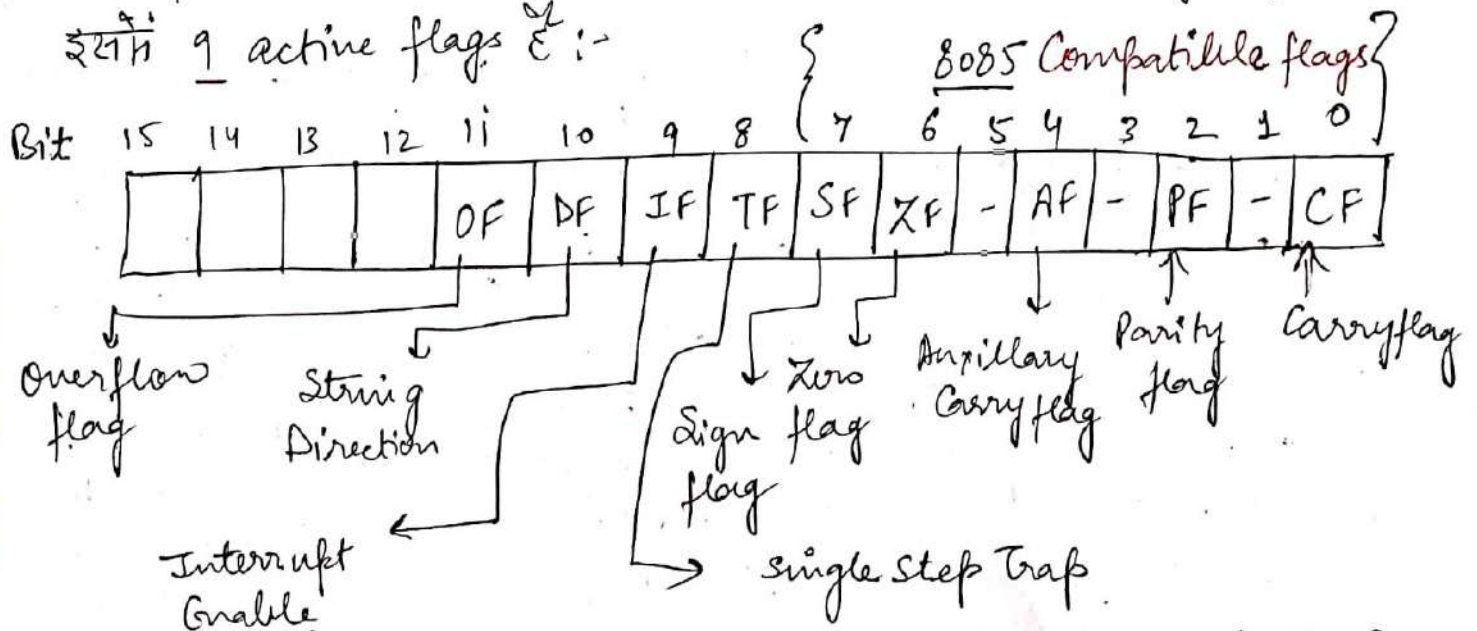 इसमें 9 active flags हैं :-
{ 8085 Compatible flags }
Bit 15 14 13 12 11 10 9 8 7 6 5 4 3 2 1 0
OF DF IF TF SF ZF - AF - PF - CF
Overflow flag
String Direction
Interrupt Enable
single step Trap
Sign flag
Zero flag
Auxillary Carry flag
Parity flag
Carryflag